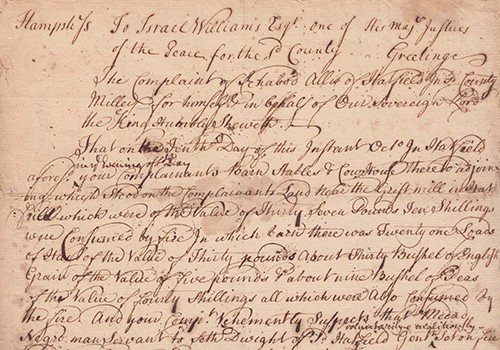 Hampsh: ss To Israel Williams Esqr. one of His Majs. Justices
of the Peace for the sd. County Greeting
The Complaint of Ichabod Allis of Hatfield in sd. County
Miller for himself & in behalf of Our Sovereign Lord
the King Humbly Sheweth
That on the Tenth Day of this Instant Octo. in Hatfield
in ye Evening of sd Day
aforesd. your Complainants Barn Stables & Cowhouse there to adjoin
ing which Stood on the Complainants Land Near the Grist mill in Hatfd.
which were of the Value of Thirty Seven Pounds Ten Shillings
were Consumed by fire In which barn there was Twenty one Loads
of Hay of the Value of Thirty pounds About Thirty Bushel of English
Grain of the Value of five pounds & about nine Bushel of Peas
of the Value of fourty Shillings all which were Also Consumed by
the fire. And your Compt. Vehemently Suspects that Medad
voluntarily
Negro man Servant to Seth Dwight of sd. Hatfield Gent. Set on fire